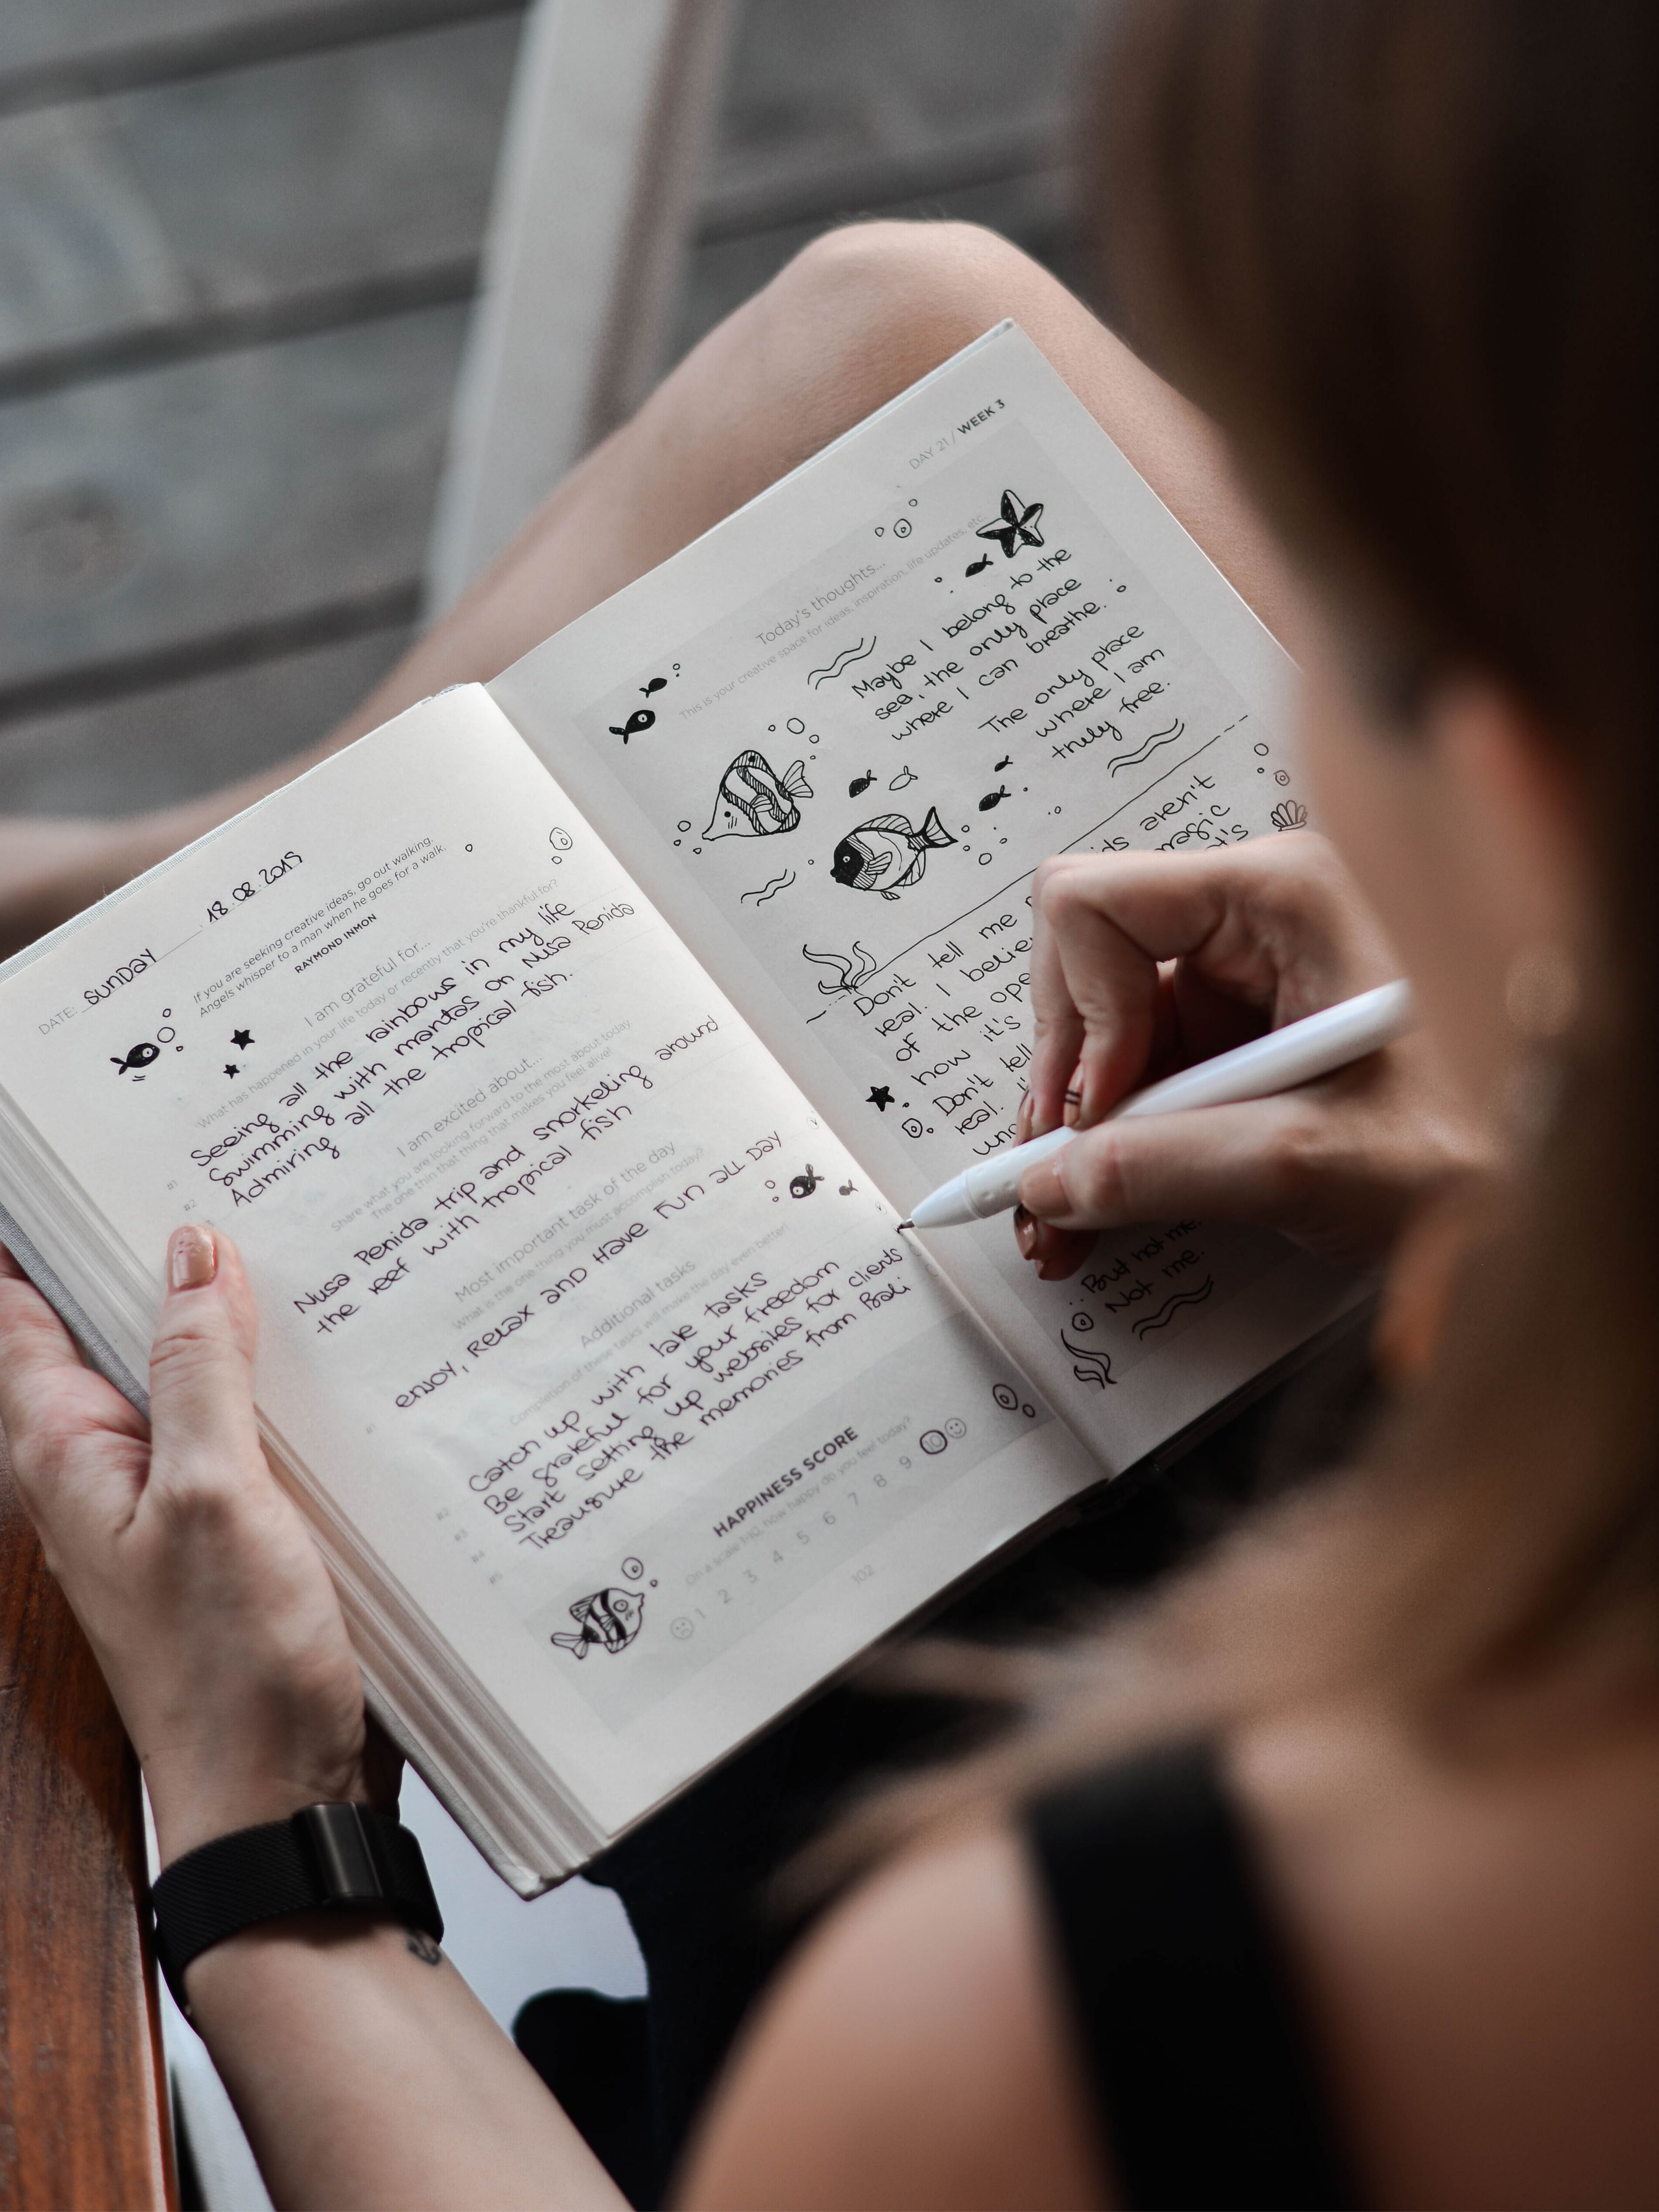 DATE: SUNDAY 18.08.2019
If you are seeking creative ideas, go out walking.
Angels whisper to a man when he goes for a walk.
RAYMOND INMON
I am grateful for...
What has happened in your life today or recently that you're thankful for?
#1 Seeing all the rainbows in my life
#2 Swimming with mantas on Nusa Penida
Admiring all the tropical fish.
I am excited about...
Share what you are looking forward to the most about today
The one thin that thing that makes you feel alive!
Nusa Penida trip and snorkeling around
the reef with tropical fish
Most important task of the day
What is the one thing you must accomplish today?
#1 ENJOY, RELAX AND HAVE FUN ALL DAY
Additional tasks
Completion of these tasks will make the day even better!
#2 Catch up with late tasks
#3 Be grateful for your freedom
#4 Start setting up websites for clients
#5 Treausure the memories from Bali
HAPPINESS SCORE
On a scale 1-10, how happy do you feel today?
1 2 3 4 5 6 7 8 9 10
102
DAY 21 / WEEK 3
Today's thoughts...
This is your creative space for ideas, inspiration, life updates, etc.
Maybe I belong to the
sea, the only place
where I can breathe.
The only place
where I am
truly free.
Don't tell me aren't
real. I magic
of the
how it's
Don't tell
real.
But not me.
Not me.